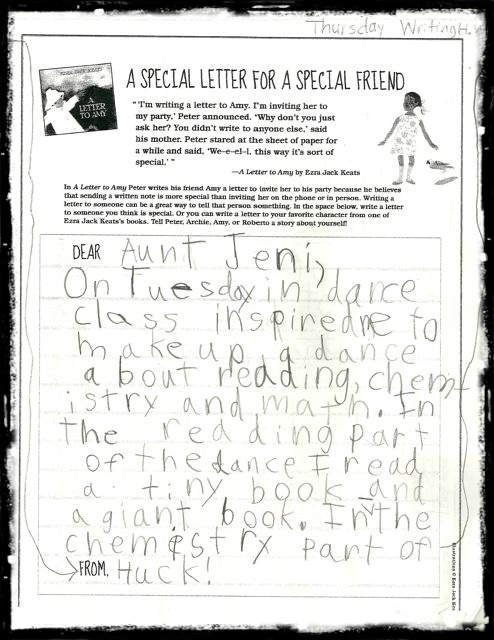 Thursday Writing H.W
EZRA JACK KEATS
A LETTER TO AMY
A SPECIAL LETTER FOR A SPECIAL FRIEND
"'I'm writing a letter to Amy. I'm inviting her to
my party,' Peter announced. 'Why don't you just
ask her? You didn't write to anyone else,' said
his mother. Peter stared at the sheet of paper for
a while and said, 'We-e-el-l, this way it's sort of
special.'"
—A Letter to Amy by Ezra Jack Keats
In A Letter to Amy Peter writes his friend Amy a letter to invite her to his party because he believes
that sending a written note is more special than inviting her on the phone or in person. Writing a
letter to someone can be a great way to tell that person something. In the space below, write a letter
to someone you think is special. Or you can write a letter to your favorite character from one of
Ezra Jack Keats's books. Tell Peter, Archie, Amy, or Roberto a story about yourself!
DEAR Aunt Jeni,
On Tuesday in dance
class inspired me to
make up a dance
a bout reading, chem-
istry and math. In
the reading part
of the dance I read
a tiny book and
a giant book. In the
chemestry part of
FROM, Huck!
Illustrations © Ezra Jack Kea